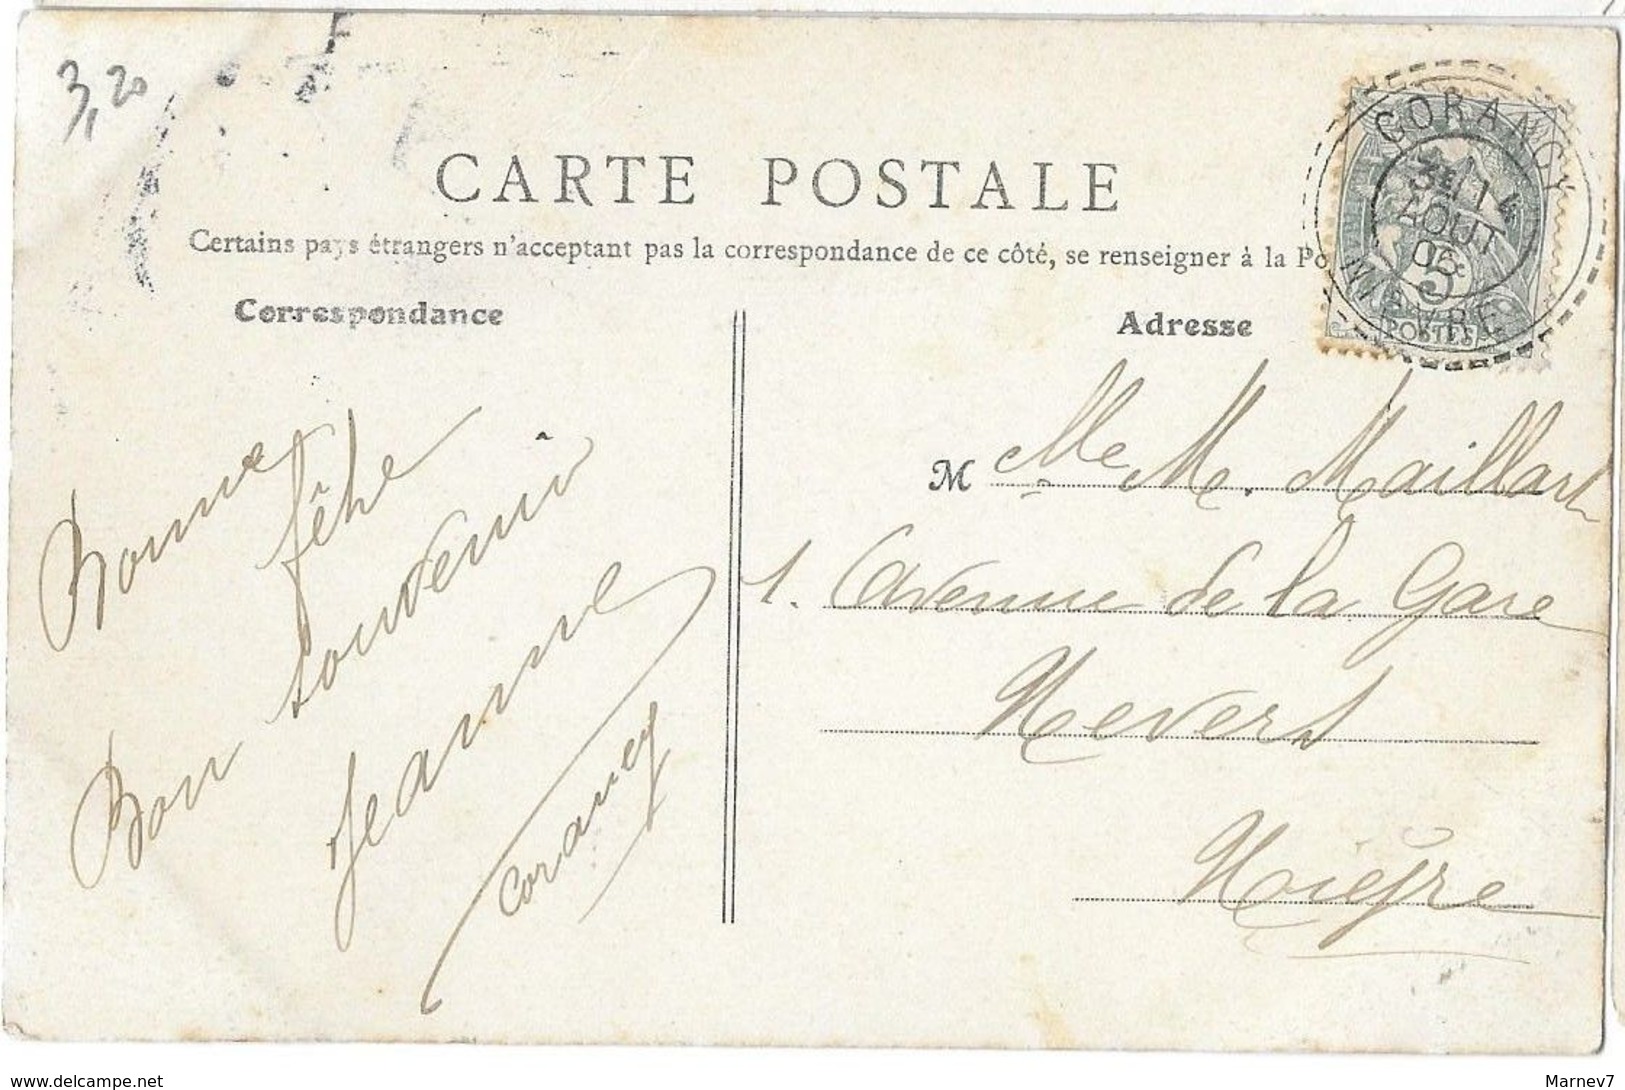 3,20
CARTE POSTALE
Certains pays étrangers n'acceptant pas la correspondance de ce côté, se renseigner à la Po
Correspondance
Adresse
CORANCY
3E 14
AOUT
06
NIEVRE
5c
POSTES
Bonne
fête
Bon souvenir
Jeanne
Corancy
M Elle M. Maillart
1. Avenue de la Gare
Nevers
Nièvre
www.delcampe.net
Marnev7